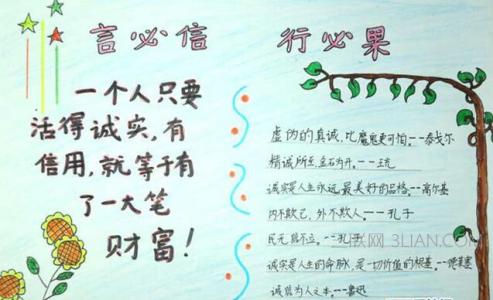 言必信 行必果
一个人只要
活得诚实,有
信用,就等于有
了一大笔
财富!
虚伪的真诚,比魔鬼更可怕。--泰戈尔
精诚所至,金石为开。--王充
诚实是人生永远最美好的品格。--高尔基
内不欺己,外不欺人。--孔子
民无信不立。--孔子
诚实是人生的命脉,是一切价值的根基。--德莱塞
诚信为人之本。--鲁迅
三联网 3LIAN.COM